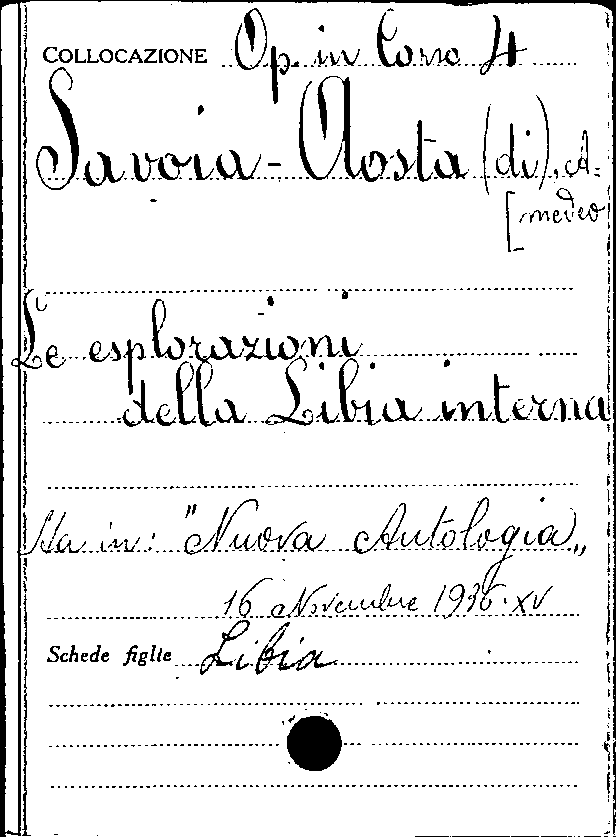 COLLOCAZIONE Op. in Corso 4
Savoia-Aosta (di), A-
[medeo
Le esplorazioni
della Libia interna
Sta in: "Nuova Antologia„
16 Novembre 1936.XV
Schede figlie Libia